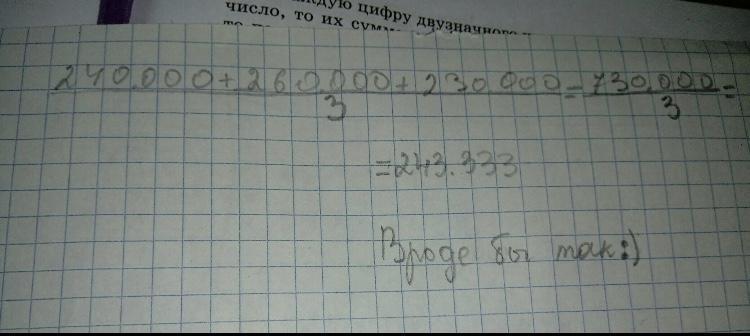 каждую цифру двузначного
число, то их сумм
240.000+260.000+230.000=730.000=
3 3
=243.333
Вроде бы так:)